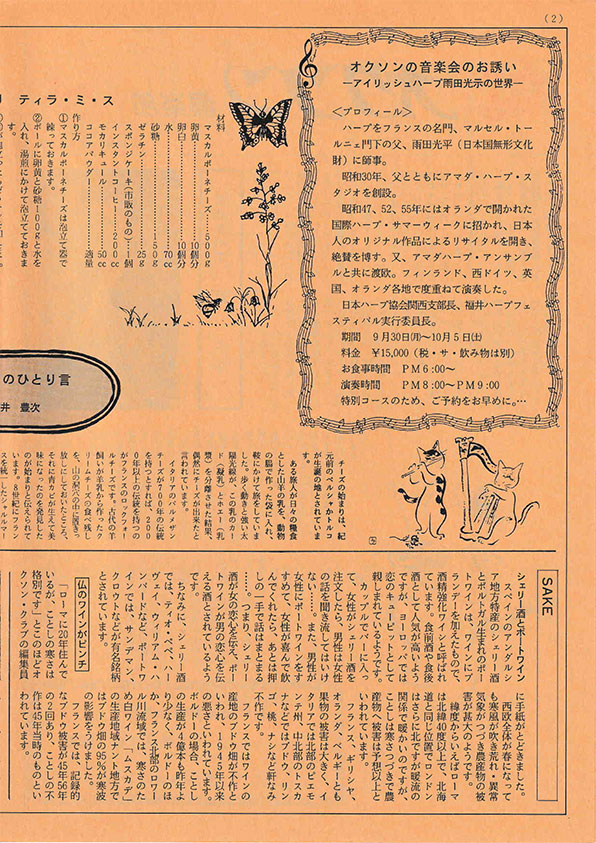 (2)
オクソンの音楽会のお誘い
―アイリッシュハープ雨田光示の世界―
＜プロフィール＞
ハープをフランスの名門、マルセル・トー
ルニェ門下の父、雨田光平（日本国無形文化
財）に師事。
昭和30年、父とともにアマダ・ハープ・ス
タジオを創設。
昭和47、52、55年にはオランダで開かれた
国際ハープ・サマーウィークに招かれ、日本
人のオリジナル作品によるリサイタルを開き、
絶賛を博す。又、アマダハープ・アンサンブ
ルと共に渡欧。フィンランド、西ドイツ、英
国、オランダ各地で度重ねて演奏した。
日本ハープ協会関西支部長、福井ハープフェ
スティバル実行委員長。
期間　９月30日(月)〜10月５日(土)
料金　¥15,000（税・サ・飲み物は別）
お食事時間　ＰＭ６:00〜
演奏時間　ＰＭ８:00〜ＰＭ９:00
特別コースのため、ご予約をお早めに。…
ティラ・ミ・ス
材料
マスカルポーネチーズ……500g
卵黄……10個分
卵白……10個分
水……70cc
砂糖……50g
ゼラチン……25g
スポンジケーキ(市販のもの)…1個
インスタントコーヒー……200cc
モカリキュール……50cc
ココアパウダー……適量
作り方
①マスカルポーネチーズは泡立て器で
練っておきます。
②ボールに卵黄と砂糖100gと水を
入れ、湯煎にかけて泡立てておきま
す。
のひとり言
井　豊次
チーズの始まりは、紀
元前のペルシャかトルコ
が生誕の地とされていま
す。
ある旅人が日々の糧食
とした山羊の乳を、動物
の腸で作った袋に入れ、
鞍にかけて旅をしていま
した。歩く動きと強い太
陽光線が、この乳のカー
ド（凝乳）とホエー（乳
漿）を分離させた結果、
偶然にチーズが出来たと
言われています。
イタリアのパルメザン
チーズが700年の伝統
を持つとすれば、200
0年以上の伝統を持つの
がフランスのロックフォー
ルチーズです。古代の羊
飼いが羊乳から作ったク
リームチーズの食べ残し
を、山の洞穴の中に置きっ
放しにしておいたところ、
それに青カビが生えて美
味になったのを発見した
のが始まりと伝えられて
います。8世紀にフラン
スを統一したシャルルマー
SAKE
シェリー酒とポートワイン
スペインのアンダルシ
ア地方特産のシェリー酒
とポルトガル生まれのポー
トワインは、ワインにブ
ランデーを加えたもので、
酒精強化ワインと呼ばれ
ています。食前酒や食後
酒として人気が高いよう
ですが、ヨーロッパでは
恋のキューピットとして
親しまれているようです。
カップルがバーに入っ
て、女性がシェリー酒を
注文したら、男性は女性
の話を聞き流してはいけ
ない……。また、男性が
女性にポートワインをす
すめて、女性が喜んで飲
んでくれたら、あとは押
しの一手で話はまとまる
……。つまり、シェリー
酒が女の恋心を伝え、ポー
トワインが男の恋心を伝
える酒とされているよう
です。
ちなみに、シェリー酒
では、ティオ・ペペ、ハー
ヴェイ、ウィリアム・ハ
ンバードなど、ポートワ
インでは、サンデマン、
クロウトなどが有名銘柄
とされています。
仏のワインがピンチ
「ローマに20年住んで
いるが、ことしの寒さは
格別です」とこのほどオ
クソン・クラブの編集員
に手紙がとどきました。
西欧全体が春になって
も寒風が吹き荒れ・異常
気象がつづき農産物の被
害が甚大のようです。
緯度からいえばローマ
は北緯40度以上で、北海
道と同じ位置でロンドン
はさらに北ですが暖流の
関係で暖かいのですが、
ことしは寒さつづきで農
産物への被害は予想以上と
いわれています。
スペイン、ギリシャ、
オランダ、ベルギーとも
果物の被害は大きく、イ
タリアでは北部のピエモ
ンテ州、中北部のトスカ
ナなどではブドウ、リン
ゴ、桃、ナシなど軒なみ
不作です。
フランスではワインの
産地のブドウ畑が不作と
いわれ、1945年以来
の悪さといわれています。
ボルドーの場合、ことし
の生産が4億本も昨年よ
り少なく、ボルドーのほ
か、フランス北部のロワー
ル川流域では、寒さのた
め白ワイン「ムスカデ」
の生産地域ナント地方で
はブドウ畑の95%が寒波
の影響をうけました。
フランスでは、記録的
なブドウ被害が45年56年
の2回あり、ことしの不
作は45年当時のものとい
われています。